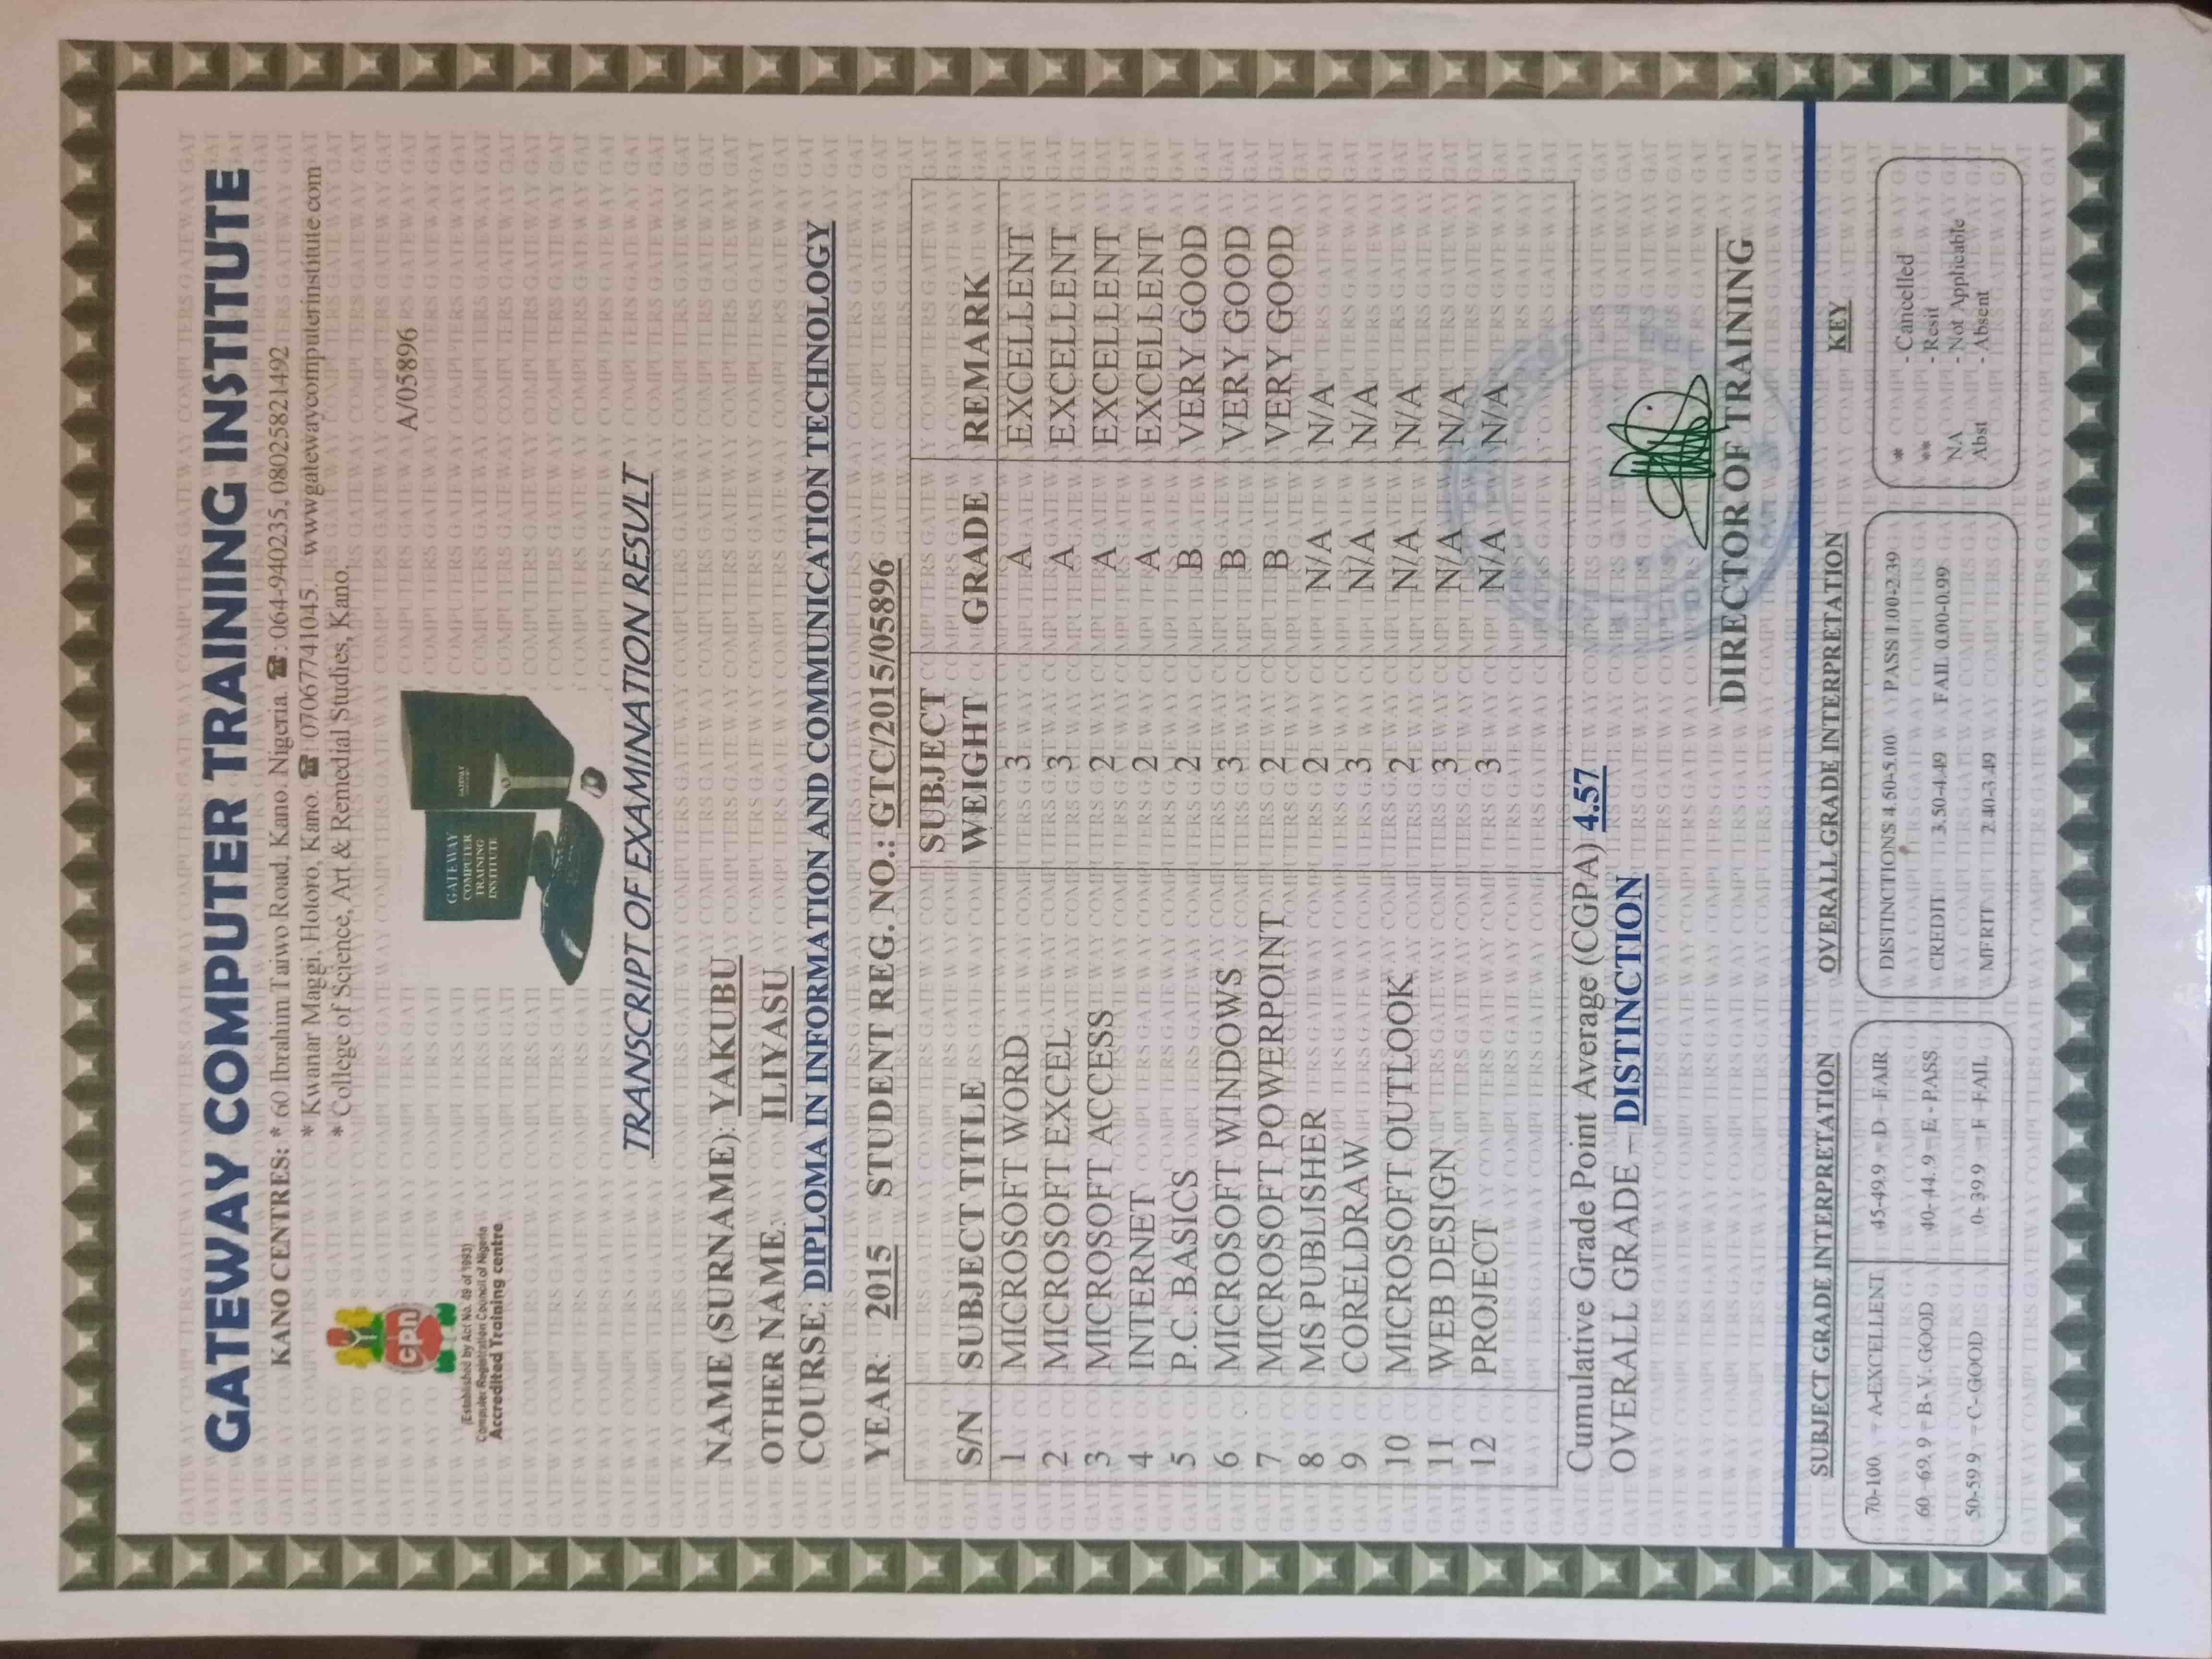 GATEWAY COMPUTER TRAINING INSTITUTE
KANO CENTRES: * 60 Ibrahim Taiwo Road, Kano. Nigeria. ☎: 064-940235, 08025821492
* Kwanar Maggi, Hotoro, Kano. ☎: 07067741045. www.gatewaycomputerinstitute.com
* College of Science, Art & Remedial Studies, Kano.
A/05896
cpn
(Established by Act No. 49 of 1993)
Computer Registration Council of Nigeria
Accredited Training centre
GATEWAY
COMPUTER
TRAINING
INSTITUTE
GATEWAY
TRANSCRIPT OF EXAMINATION RESULT
NAME (SURNAME): YAKUBU
OTHER NAME: ILIYASU
COURSE: DIPLOMA IN INFORMATION AND COMMUNICATION TECHNOLOGY
YEAR: 2015 STUDENT REG. NO.: GTC/2015/05896
S/N SUBJECT TITLE SUBJECT WEIGHT GRADE REMARK
1 MICROSOFT WORD 3 A EXCELLENT
2 MICROSOFT EXCEL 3 A EXCELLENT
3 MICROSOFT ACCESS 2 A EXCELLENT
4 INTERNET 2 A EXCELLENT
5 P.C. BASICS 2 B VERY GOOD
6 MICROSOFT WINDOWS 3 B VERY GOOD
7 MICROSOFT POWERPOINT 2 B VERY GOOD
8 MS PUBLISHER 2 N/A N/A
9 CORELDRAW 3 N/A N/A
10 MICROSOFT OUTLOOK 2 N/A N/A
11 WEB DESIGN 3 N/A N/A
12 PROJECT 3 N/A N/A
Cumulative Grade Point Average (CGPA) 4.57
OVERALL GRADE – DISTINCTION
DIRECTOR OF TRAINING
SUBJECT GRADE INTERPRETATION
70-100 = A-EXCELLENT 45-49.9 = D - FAIR
60 -69.9 = B- V. GOOD 40-44. 9 = E - PASS
50-59.9 = C- GOOD 0- 39.9 = F - FAIL
OVERALL GRADE INTERPRETATION
DISTINCTIONS 4.50-5.00 PASS 1.00-2.39
CREDIT 3.50-4.49 FAIL 0.00-0.99
MERIT 2.40-3.49
KEY
* - Cancelled
** - Resit
NA - Not Applicable
Abst - Absent